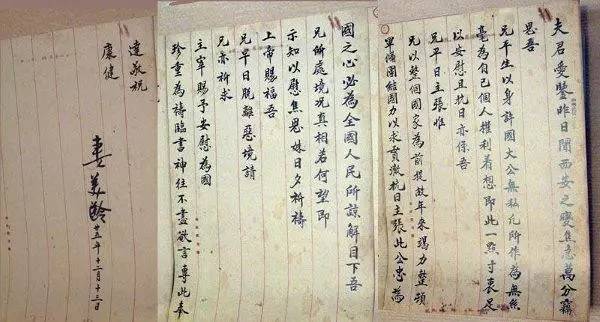 夫君愛鑒昨日聞西安之變焦急萬分竊
思吾
兄平生以身許國大公無私凡所作為無絲
毫為自己個人權利着想即此一點寸衷足
以安慰且抗日亦係吾
兄平日主張惟
兄以整個國家為前提故年來竭力整頓
軍備團結國力以求貫澈抗日主張此公忠為
國之心必為全國人民所諒解目下吾
兄所處境況真相若何望即
示知以慰焦思妹日夕祈禱
上帝賜福吾
兄早日脫離惡境請
兄亦祈求
主宰賜予安慰為國
珍重為禱臨書神往不盡欲言專此奉
達敬祝
康健
妻 美齡
廿五年十二月十三日